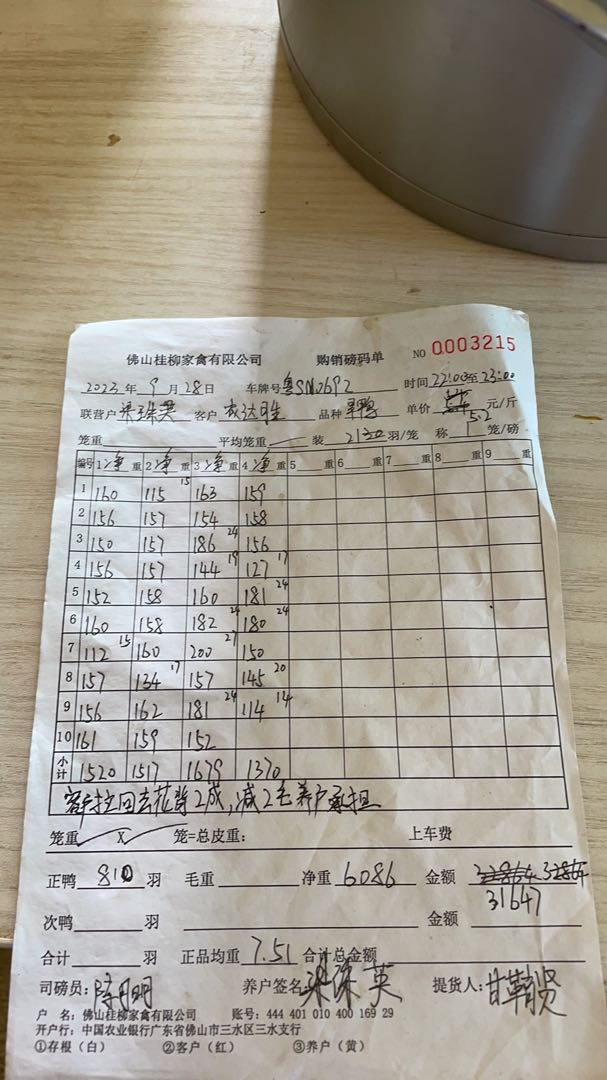 佛山桂柳家禽有限公司 购销磅码单 NO 0003215
2023年 9月28日 车牌号 时间 22:00至23:00
联营户 客户 品种 单价 5.2 元/斤
笼重 平均笼重 装 羽/笼 称 1 笼/磅
编号 1 净重 2 净重 3 净重 4 净重 5 重 6 重 7 重 8 重 9 重
1 160 115 15 163 159
2 156 157 154 158
3 150 157 186 24 156
4 156 157 144 19 127 17
5 152 158 160 181 24
6 160 158 182 24 180 24
7 112 15 160 200 27 150
8 157 134 17 157 145 20
9 156 162 181 24 114 14
10 161 159 152
小计 1520 1517 1679 1370
客户拉回去花背2成,减2毛养户承担
笼重 X 笼=总皮重: 上车费
正鸭 810 羽 毛重 净重 6086 金额 32864 32864
31647
次鸭 羽 金额
合计 羽 正品均重 7.51 合计总金额
司磅员: 养户签名 英 提货人:
户 名: 佛山桂柳家禽有限公司 账号: 444 401 010 400 169 29
开户行: 中国农业银行广东省佛山市三水区三水支行
①存根(白) ②客户(红) ③养户(黄)